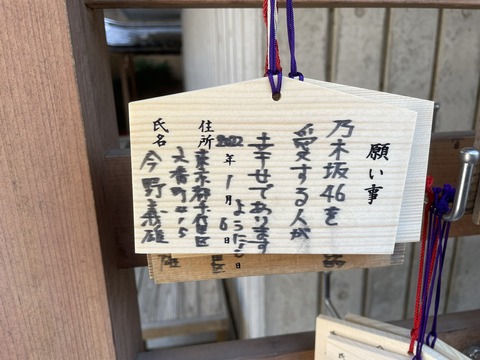 願い事
乃木坂46を
愛する人が
幸せであります
ように
2022年1月6日
住所
東京都千代田区
氏名
今野義雄